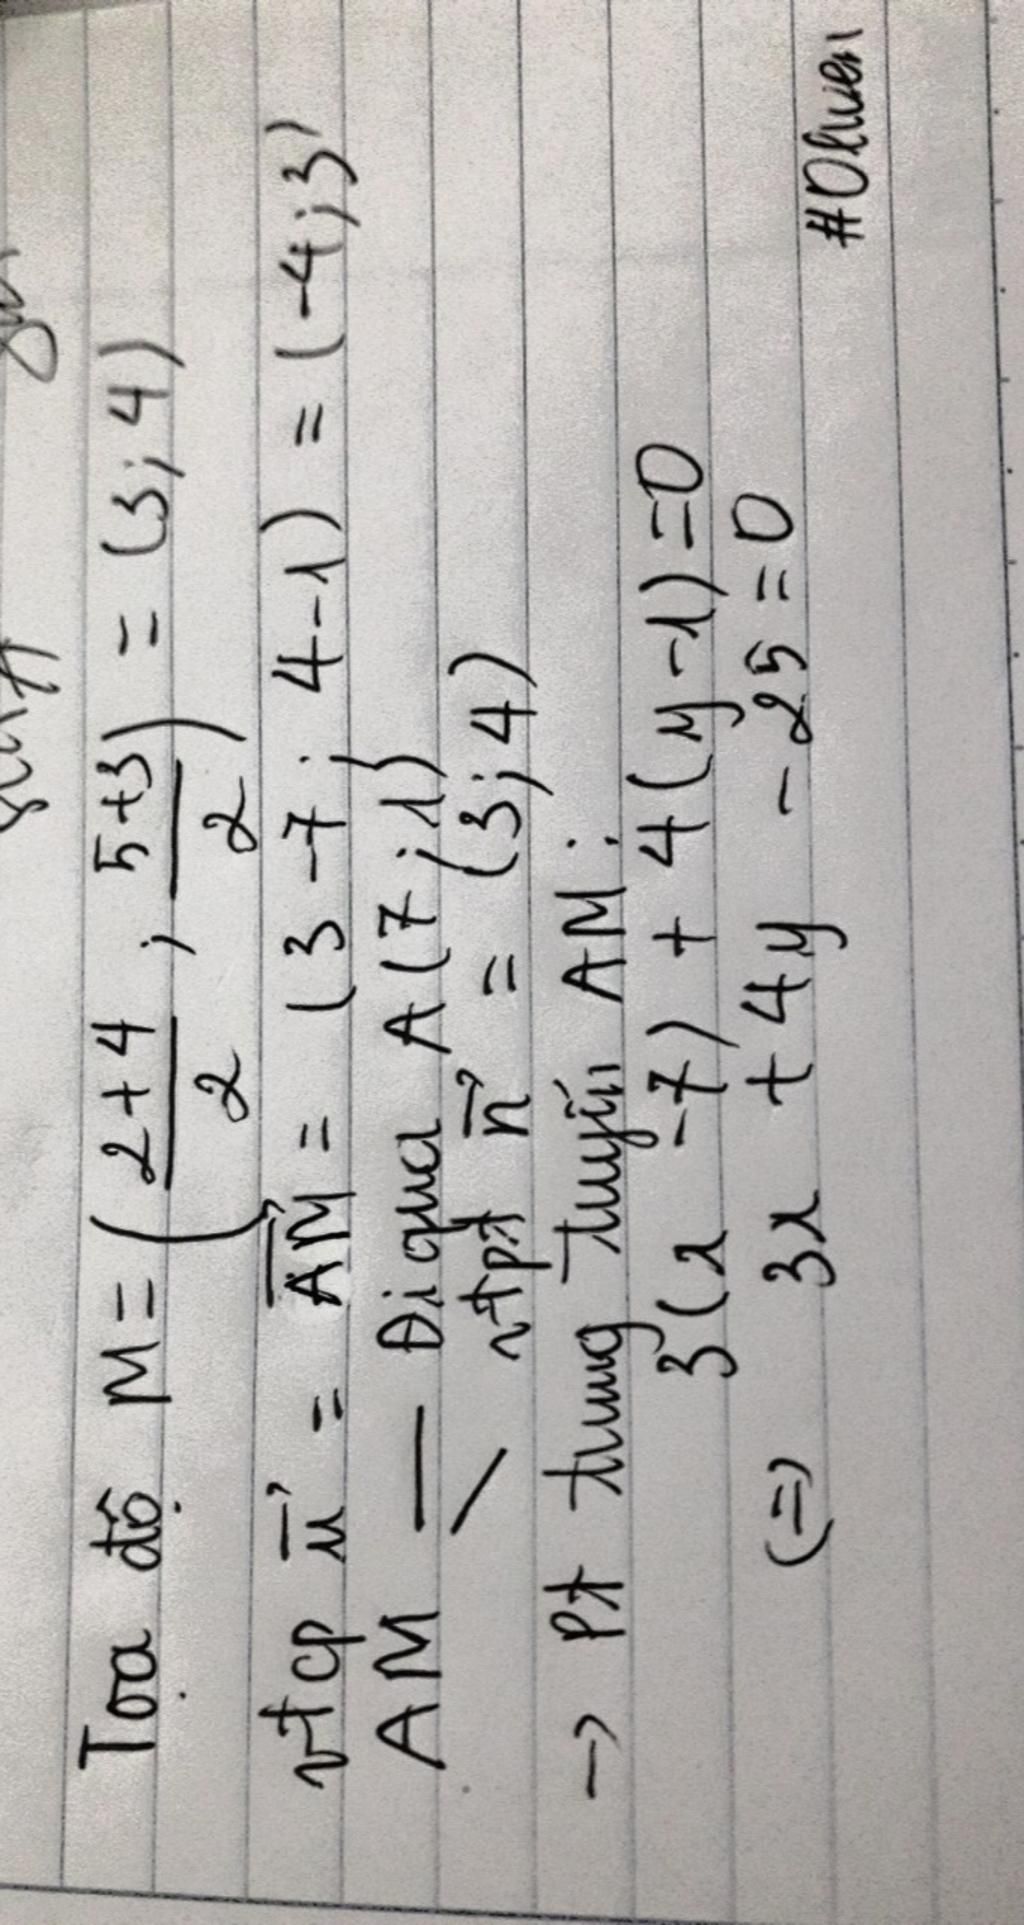 Toạ độ M = (2+4/2 ; 5+3/2) = (3;4)
vtcp u⃗ = AM⃗ = (3-7; 4-1) = (-4;3)
AM — Đi qua A(7;1)
\ vtpt n⃗ = (3;4)
-> Pt trung tuyến AM:
3(x-7) + 4(y-1) = 0
(=) 3x + 4y - 25 = 0
#Oliver